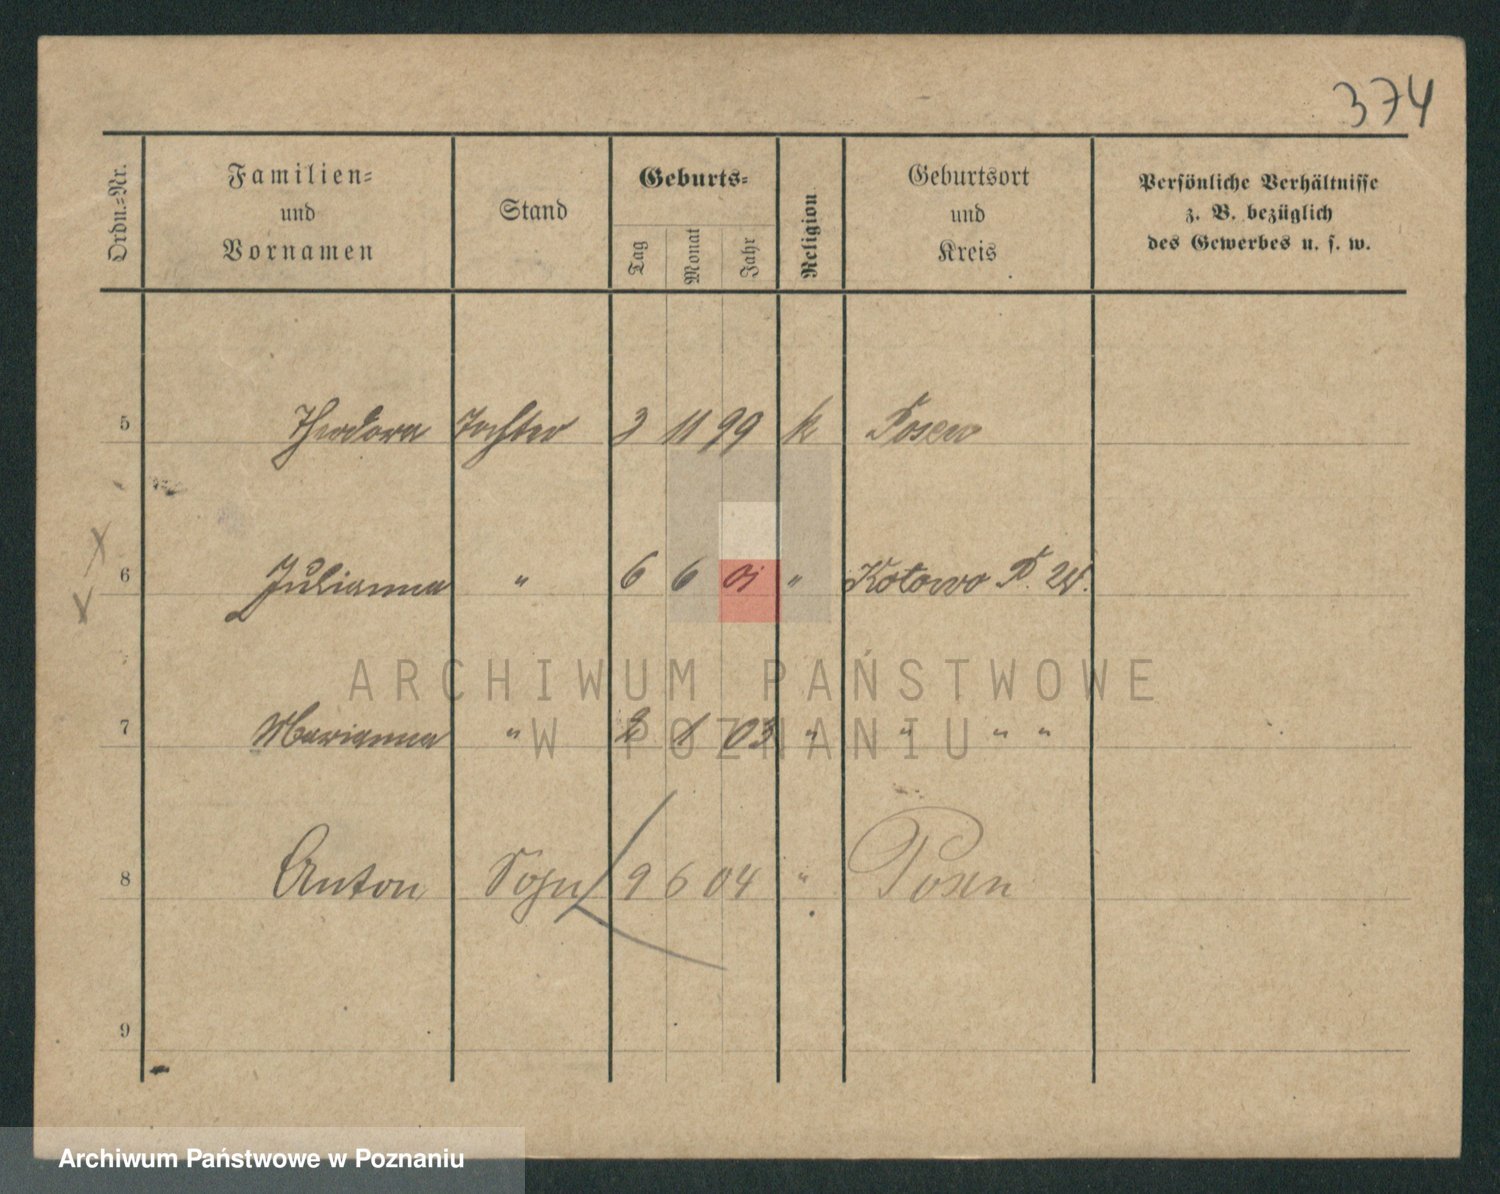 374
Ordn.=Nr.
Familien=
und
Vornamen
Stand
Geburts=
Tag
Monat
Jahr
Religion
Geburtsort
und
Kreis
Persönliche Verhältnisse
z. B. bezüglich
des Gewerbes u. s. w.
5 Theodora Tochter 3 11 99 k Posen
6 Julianna " 6 6 01 " Kotowo P. W.
ARCHIWUM PAŃSTWOWE
W POZNANIU
7 Marianna " 2 1 03 " " " "
8 Anton Sohn 9 6 04 " Posen
9
Archiwum Państwowe w Poznaniu